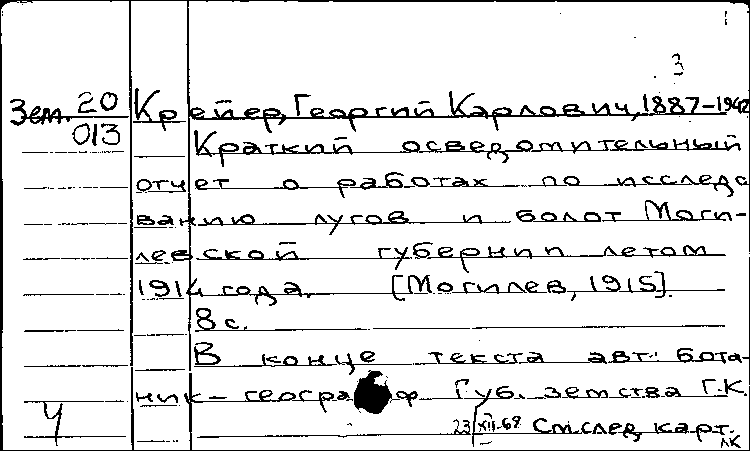 3
Зем. 20 Крейер, Георгий Карлович, 1887-1942
013
Краткий осведомительный
отчет о работах по исследо
ванию лугов и болот Моги-
левской губернии летом
1914 года. [Могилев, 1915].
8 с.
В конце текста авт.: бота-
ник-географ Губ. земства Г.К.
Ч 23/XII-68 См.след. карт.
ЛК